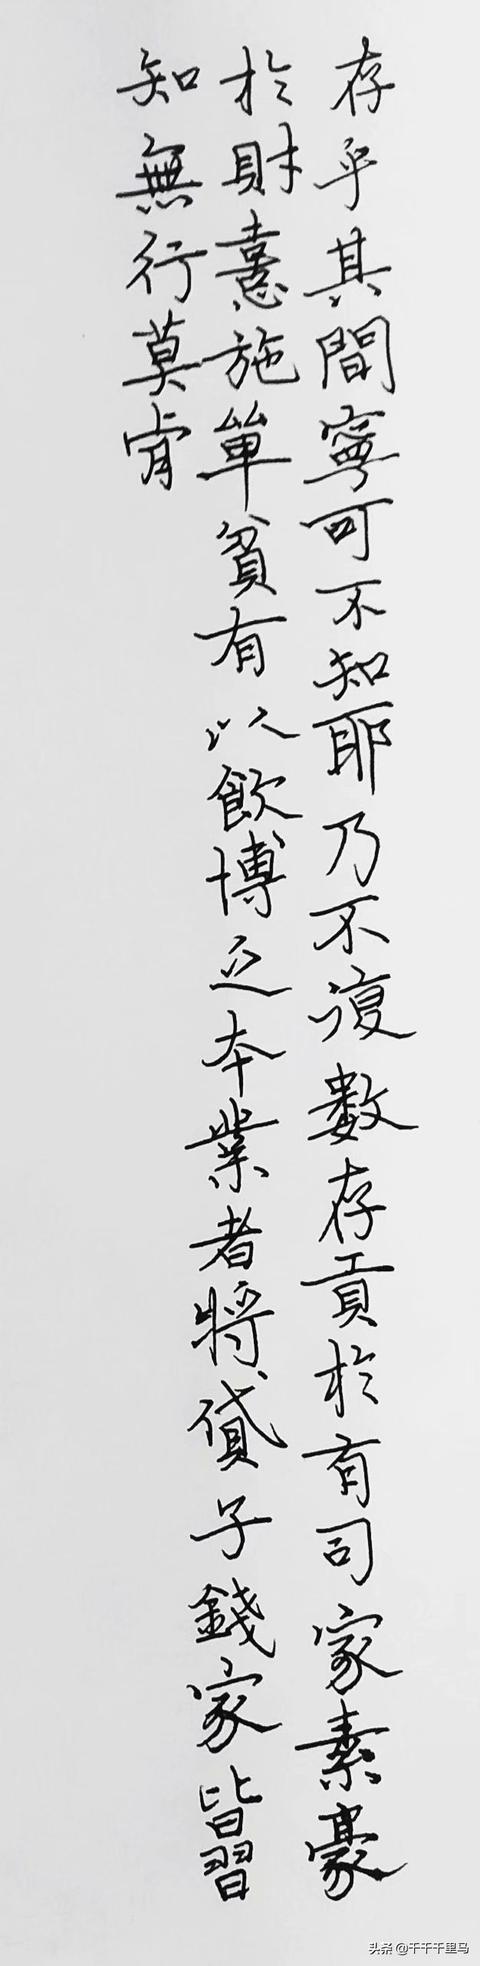 存乎其間寧可不知耶乃不復數存貢於有司家素豪
於財憙施單貧有以飲博乏本業者將貸子錢家皆習
知無行莫肯
头条 @千千千里马